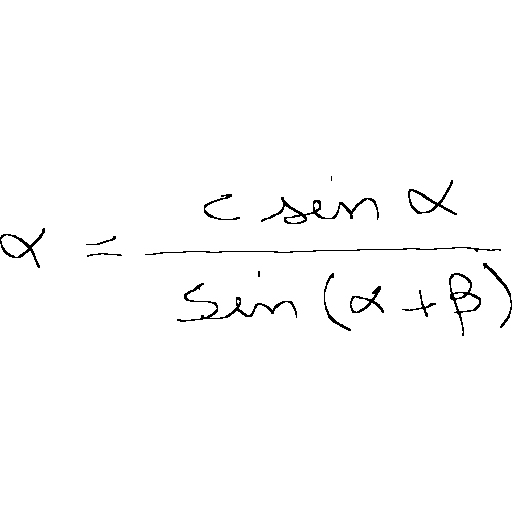 α = \frac{c \sin α}{\sin (α + β)}